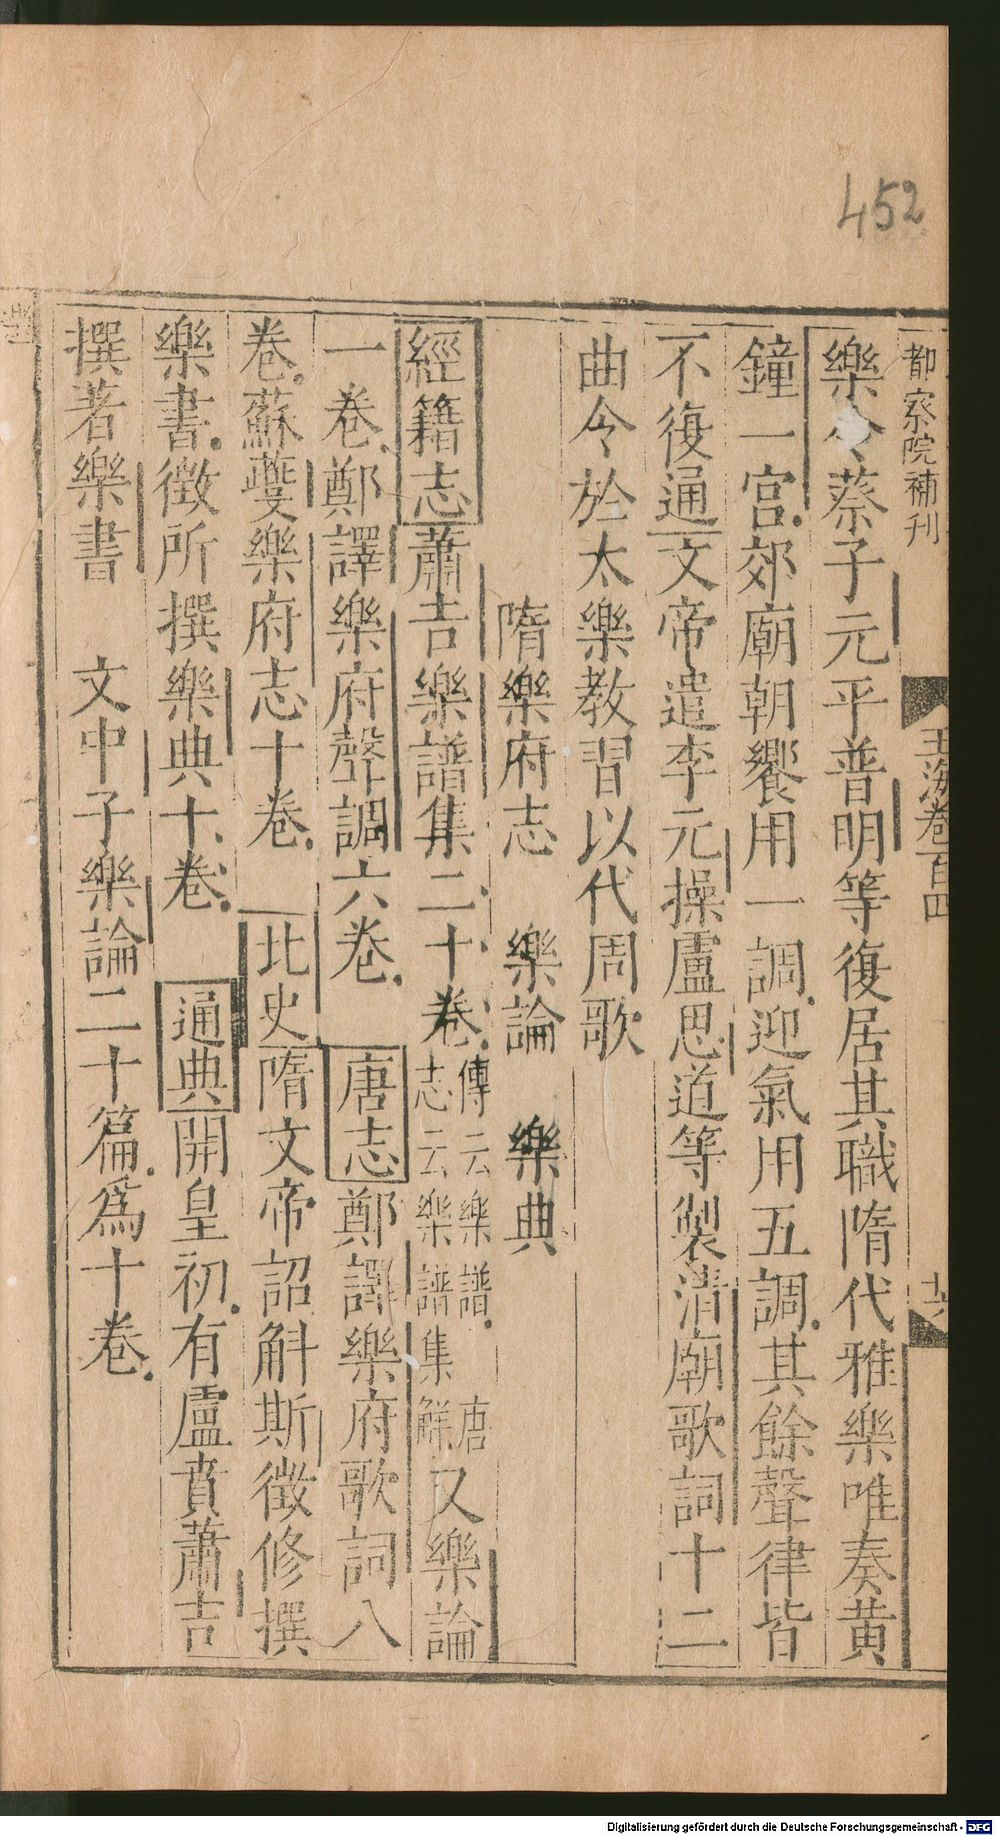 452
都察院補刊
玉海卷百四
樂令蔡子元平普明等復居其職隋代雅樂唯奏黄
鐘一宮郊廟朝饗用一調迎氣用五調其餘聲律皆
不復通文帝遣李元操盧思道等製清廟歌詞十二
曲令於太樂教習以代周歌
隋樂府志 樂論 樂典
經籍志蕭吉樂譜集二十卷傳云樂譜 唐志云樂譜集解又樂論
一卷鄭譯樂府聲調六卷 唐志鄭譯樂府歌詞八
卷蘇夔樂府志十卷 北史隋文帝詔斛斯徵修撰
樂書徵所撰樂典十卷 通典開皇初有盧賁蕭吉
撰著樂書 文中子樂論二十篇爲十卷
Digitalisierung gefördert durch die Deutsche Forschungsgemeinschaft - DFG